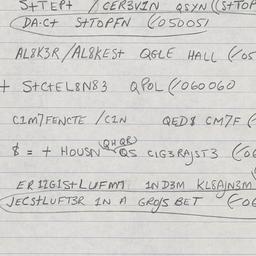 S+TEP+ / CER3V1N QSYN ((S+TOP
DA:C+ S+TOPFN (/050051
AL8K3R/AL8KES+ QGLE HALL (/05
+ S+C+EL8N83 QPOL (/060060
C1M7FENCTE /C1N QED$ CM7F (
QHQR)
$ = + HOUSN QS C1G3RAJST3 (06
1ND3M KL8AJN3M
JECS+LUFT3R 1N A GROJS BET (/06